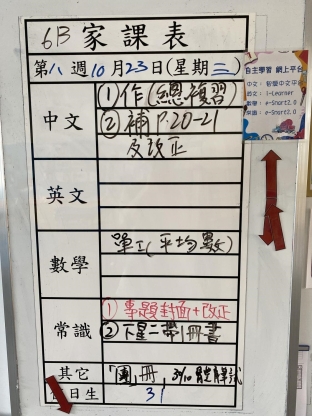 6B 家課表
第八週10月23日(星期三)
中文
①作(總複習)
②補P.20-21
及改正
英文
數學
單工(平均數)
常識
①專題封面+改正
②下星二帶1冊書
其它
日生
31
自主學習 網上平台
英文: i-Learner
數學: e-Smart2.0
常識: e-Smart2.0